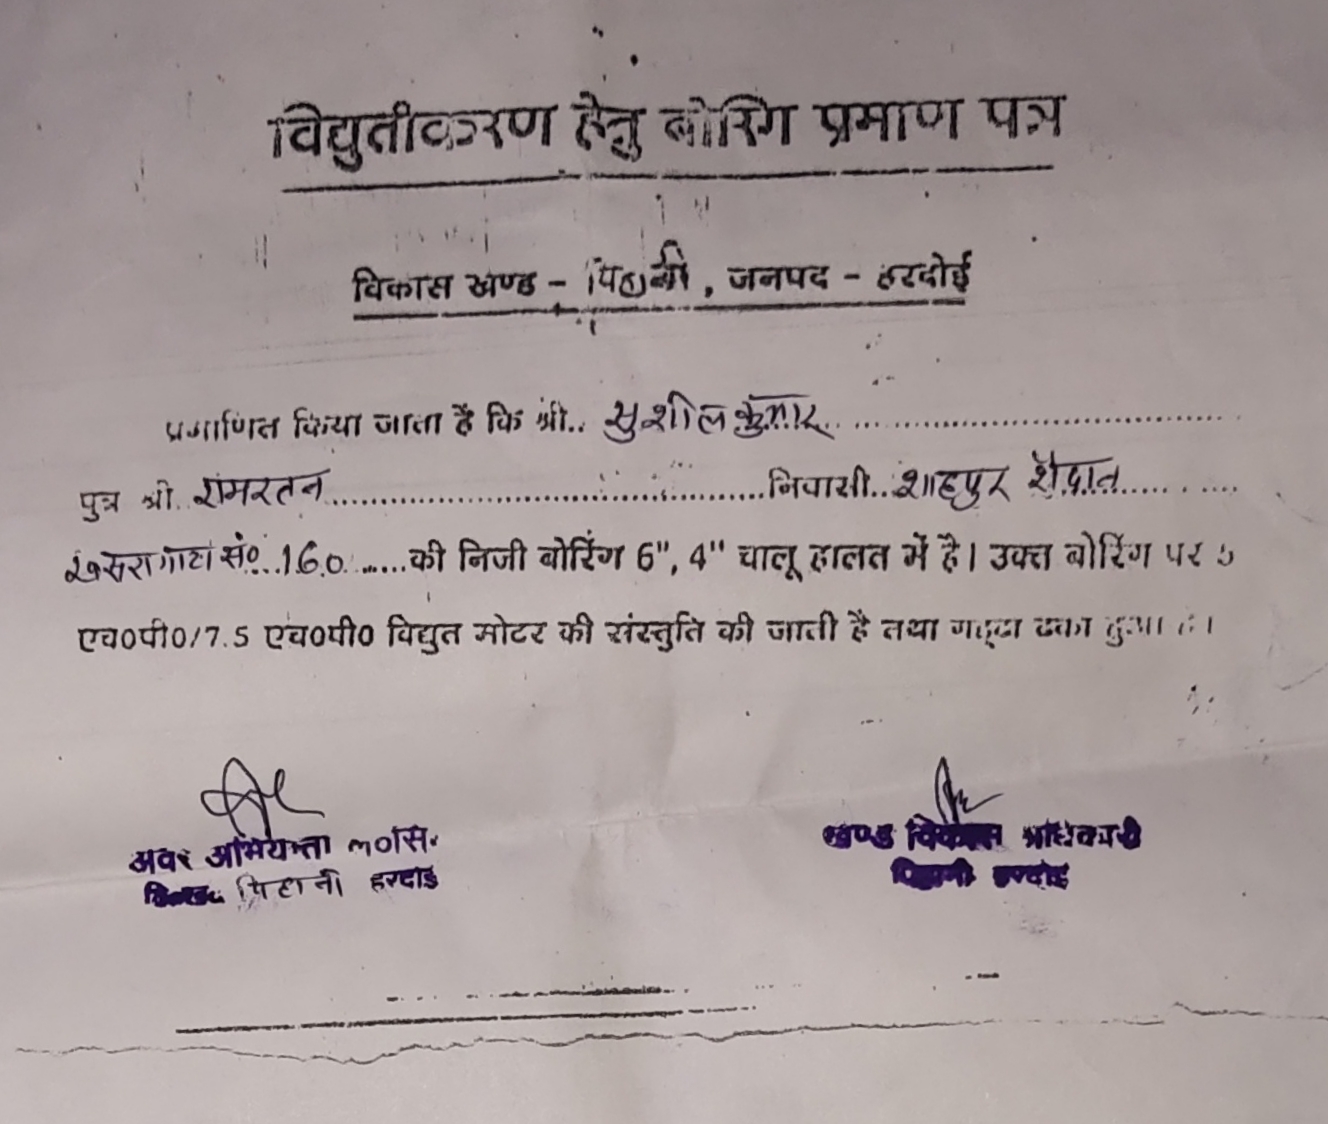 विद्युतीकरण हेतु बोरिंग प्रमाण पत्र
विकास खण्ड - पिहानी, जनपद - हरदोई
प्रमाणित किया जाता है कि श्री.. सुशील कुमार
पुत्र श्री. रामरतन निवासी.. शाहपुर शैदान
खसरा गाटा सं० 160 की निजी बोरिंग 6", 4" चालू हालत में है। उक्त बोरिंग पर 5
एच0पी0/7.5 एच0पी0 विद्युत मोटर की संस्तुति की जाती है तथा गड्ढा ढका हुआ है।
अवर अभियन्ता ल०सि०
पिहानी हरदोई
खण्ड विकास अधिकारी
पिहानी हरदोई